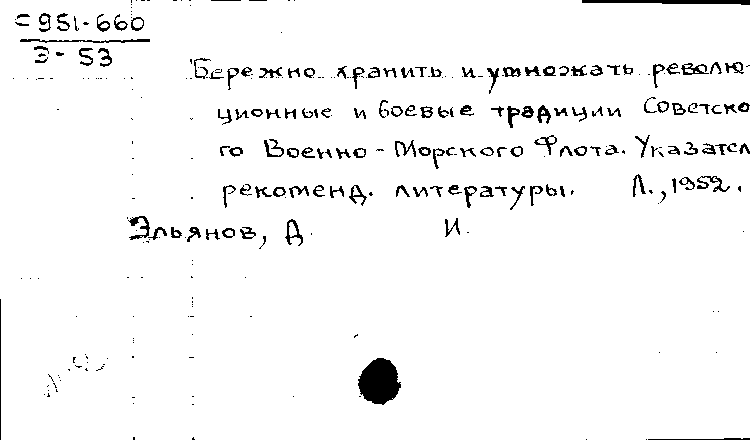 С 951-660
Э-53
Бережно хранить и умножать револю-
ционные и боевые традиции Советско
го Военно-Морского Флота. Указател
рекоменд. литературы. Л., 1952.
Эльянов, Д. И.